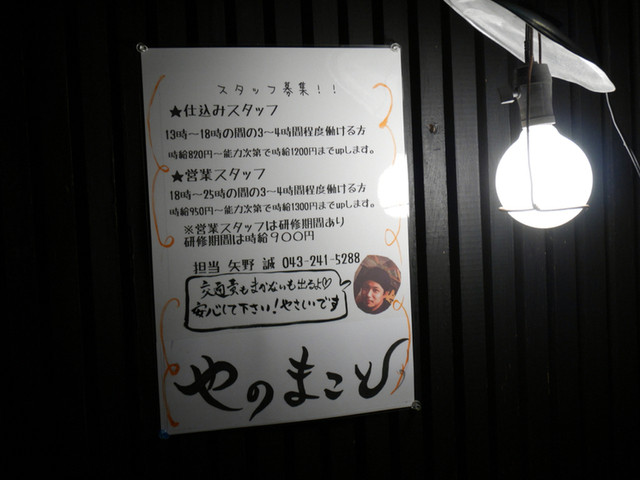 スタッフ募集!!
★仕込みスタッフ
13時～18時の間の3～4時間程度働ける方
時給820円～能力次第で時給1200円までupします。
★営業スタッフ
18時～25時の間の3～4時間程度働ける方
時給950円～能力次第で時給1300円までupします。
※営業スタッフは研修期間あり
研修期間は時給900円
担当 矢野 誠 043-241-5288
交通費もまかないも出るよ♡
安心して下さい!やさしいです
やのまこと